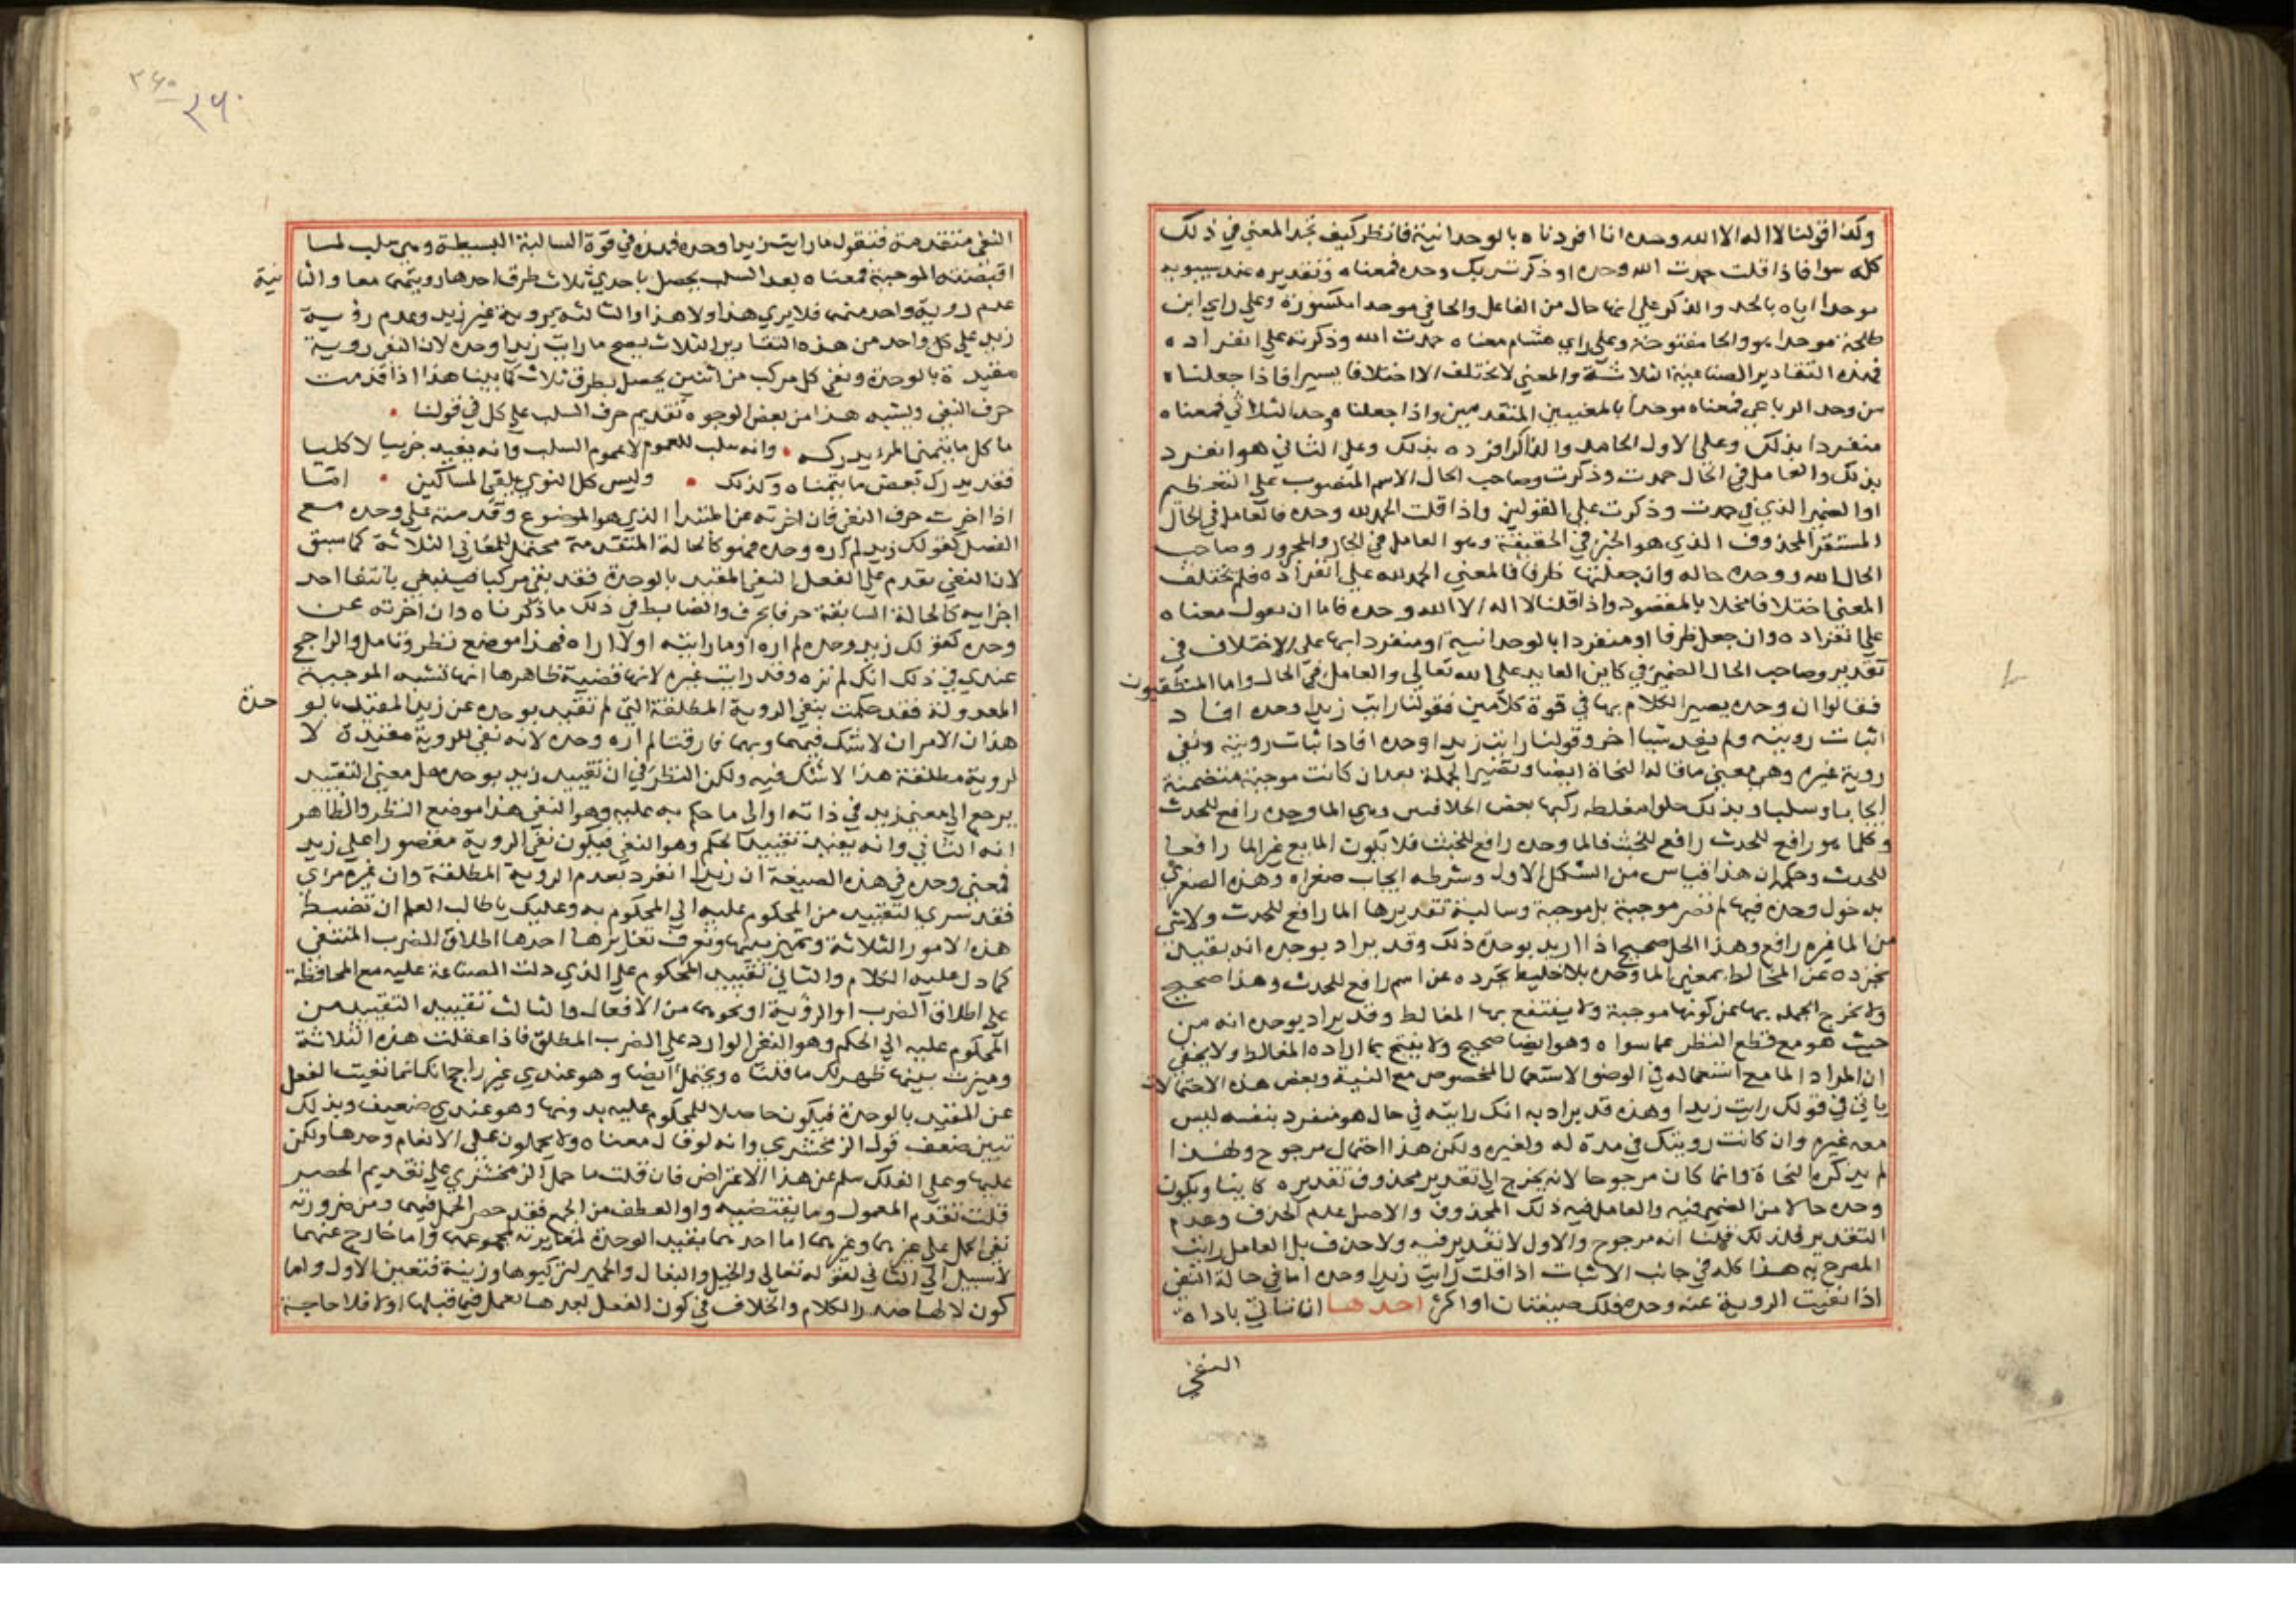 وكذا قولنا لا اله الا الله وحده انا افردناه بالوحدانية فانظر كيف تجد المعني في ذلك
كله سوا فاذا قلت حمدت الله وحده او ذكرت ربك وحده فمعناه وتقديره عند سيبويه
موحدا اياه بالحمد والذكر علي انها حال من الفاعل والحا في موحدا مكسورة وعلي راي ابن
طلحة موحدا هو والحا مفتوحة وعلي راي هشام معناه حمدت الله وذكرته علي انفراده
فهذه التقادير الصناعية الثلاثة والمعني لا يختلف الا اختلافا يسيرا فاذا جعلناه
من وحد الرباعي فمعناه موحدا بالمعنيين المتقدمين واذا جعلناه وحد الثلاثي فمعناه
منفردا بذلك وعلي الاول الحامد والذاكر افرده بذلك وعلي الثاني هو انفرد
بذلك والعامل في الحال حمدت وذكرت وصاحب الحال الاسم المنصوب علي التعظيم
او الضمير الذي في حمدت وذكرت علي القولين واذا قلت الحمد لله وحده فالعامل في الحال
المستقر المحذوف الذي هو الخبر في الحقيقة وهو العامل في الجار والمجرور وصاحب
الحال الله ووحده حاله وان جعلتها ظرفا فالمعني الحمد لله علي انفراده فلم يختلف
المعني اختلافا مخلا بالمقصود واذا قلنا لا اله الا الله وحده فاما ان يعول معناه
علي انفراده وان جعل ظرفا او منفردا بالوحدانية او منفردا بها علي الاختلاف في
تقدير وصاحب الحال الضمير في كاين العايد علي الله تعالي والعامل في الحال واما المنطقيون
فقالوا ان وحده يصير الكلام بها في قوة كلامين فقولنا رايت زيدا وحده افاد
اثبات رويته ولم يفد شيا اخر وقولنا رايت زيدا وحده افاد اثبات رويته ونفي
روية غيره وهي معني ما قاله النحاة ايضا وتصير الجملة بعد ان كانت موجبة متضمنة
ايجابا وسلبا وبذلك حلوا مغلطة ركبها بعض الخلافيين وهي الما وحده رافع للحدث
وكلما هو رافع للحدث رافع للخبث فالما وحده رافع للخبث فلا يكون المايع غير الما رافعا
للحدث وحكم ان هذا قياس من الشكل الاول وشرطه ايجاب صغراه وهذه الصغري
بدخول وحده فيها لم تصر موجبة بل موجبة وسالبة تقديرها الما رافع للحدث ولا شي
من الما غيره رافع وهذا الحل صحيح اذا اريد بوحده ذلك وقد يراد بوحده انه بقيد
تجرده عن المخالط بمعني الما وحده بلا خليط تجرده عن اسم رافع للحدث وهذا صحيح
ولا تخرج الجمله بهما عن كونها موجبة ولا ينتفع بها المغالط وقد يراد بوحده انه من
حيث هو مع قطع النظر عما سواه وهو ايضا صحيح ولا ينتج ما اراده المغالط ولا يخفي
ان المراد الما مع استعماله في الوضو الاستعمال المخصوص مع النية وبعض هذه الاحتمالات
ياتي في قولك رايت زيدا وهذه قد يراد به انك رايته في حال هو منفرد بنفسه ليس
معه غيره وان كانت رويتك في مدة له ولغيره ولكن هذا احتمال مرجوح ولهذا
لم يذكره النحاة وانما كان مرجوحا لانه يخرج الي تقدير محذوف تقديره كاينا ويكون
وحده حالا من الضمير فيه والعامل فيه ذلك المحذوف والاصل عدم الحذف وعدم
التقدير فلذلك قلنا انه مرجوح والاول لا تقدير فيه ولا حذف بل العامل رايت
المصرح به هذا كله في جانب الاثبات اذا قلت رايت زيدا وحده اما في حالة النفي
اذا نفيت الروية عنه وحده فلك صيغتان او اكثر احدها ان تاتي باداة
النفي
٢٦٠
٢٦٠
النفي متقدمة فتقول ما رايت زيدا وحده فهذه في قوة السالبة البسيطة وهي سلب لما
اقتضته الموجبة فمعناه بعد السلب يحصل باحدي ثلاث طرق احدها رويتهما معا والثانية
عدم روية واحد منهما فلا يري هذا ولا هذا والثالثه بروية غير زيد وعدم روية
زيد علي كل واحد من هذه التقادير الثلاث يصح ما رايت زيدا وحده لان النفي روية
مقيدة بالوحدة ونفي كل مركب من اثنين يحصل بطرق ثلاث كما بينا هذا اذا قدمت
حرف النفي ويشبه هذا من بعض الوجوه تقديم حرف السلب علي كل في قولنا
ما كل ما يتمني المرء يدركه وانه سلب للعموم لا عموم السلب وانه يفيد جزييا لا كليا
فقد يدرك بعض ما يتمناه وكذلك وليس كل النوي يلقي المساكين اما
اذا اخرت حرف النفي فان اخرته عن المبتدا الذي هو الموضوع وقدمته علي وحده مع
الفصل كقولك زيد لم اره وحده فهو كالحالة المتقدمة محتمل للمعاني الثلاثة كما سبق
لان النفي تقدم علي الفعل النفي المقيد بالوحدة فقد نفي مركبا فينبغي بانتفا احد
اجزايه كالحالة السابقة حرفا بحرف والضابط في ذلك ما ذكرناه وان اخرته عن
وحده كقولك زيد وحده لم اره او ما رايته او لا اراه فهذا موضع نظر وتامل والراجح
عندي في ذلك انك لم تره وقد رايت غيره لانها قضية ظاهرها انها تشبه الموجبة
المعدولة فقد حكمت بنفي الروية المطلقة التي لم تقيد بوحده عن زيد المقيد بالوحدة
هذان الامران لا شك فيهما وبهما فارقت لم اره وحده لانه نفي للروية مقيدة لا
لروية مطلقة هذا لا شك فيه ولكن النظر في ان تقييد زيد بوحده هل معني التقييد
يرجع الي معني زيد في ذاته او الي ما حكم به عليه وهو النفي هذا موضع النظر والظاهر
انه الثاني وانه يفيد تقييد الحكم وهو النفي فيكون نفي الروية مقصورا علي زيد
فمعني وحده في هذه الصيغة ان زيدا انفرد بعدم الروية المطلقة وان غيره مراي
فقد سري التقييد من المحكوم عليه الي المحكوم به وعليك يا طالب العلم ان تضبط
هذه الامور الثلاثة وتميز بينها وتعرف تغايرها احدها اطلاق الضرب المنتفي
كما دل عليه الكلام والثاني تقييد المحكوم علي الذي دلت الصناعة عليه مع المحافظة
علي اطلاق الضرب او الروية او نحوهما من الافعال والثالث تقييد التقييد من
المحكوم عليه الي الحكم وهو النفي الوارد علي الضرب المطلق فاذا عقلت هذه الثلاثة
وميزت بينها ظهر لك ما قلناه ويحتمل ايضا وهو عندي غير راجح انك انما نفيت الفعل
عن المقيد بالوحدة فيكون حاصلا للمحكوم عليه بدونها وهو عندي ضعيف وبذلك
تبين ضعف قول الزمخشري وانه لو قال معناه ولا يحملون علي الانعام وحدها ولكن
عليها وعلي الفلك سلم عن هذا الاعتراض فان قلت ما حمل الزمخشري علي تقديم الحصر
قلت تقدم المعمول وما يقتضيه واو العطف من الجمع فقد حصر الحمل فيهما ومن ضرورته
نفي الحمل علي غيرهما وغيرهما اما احدهما بقيد الوحدة لمغايرته لمجموعهما واما خارج عنهما
لا سبيل الي الثاني لقوله تعالي والخيل والبغال والحمير لتركبوها وزينة فتعين الاول واما
كون لا لها صدر الكلام والخلاف في كون الفعل بعدها يعمل فيما قبلها او لا فلا حاجة